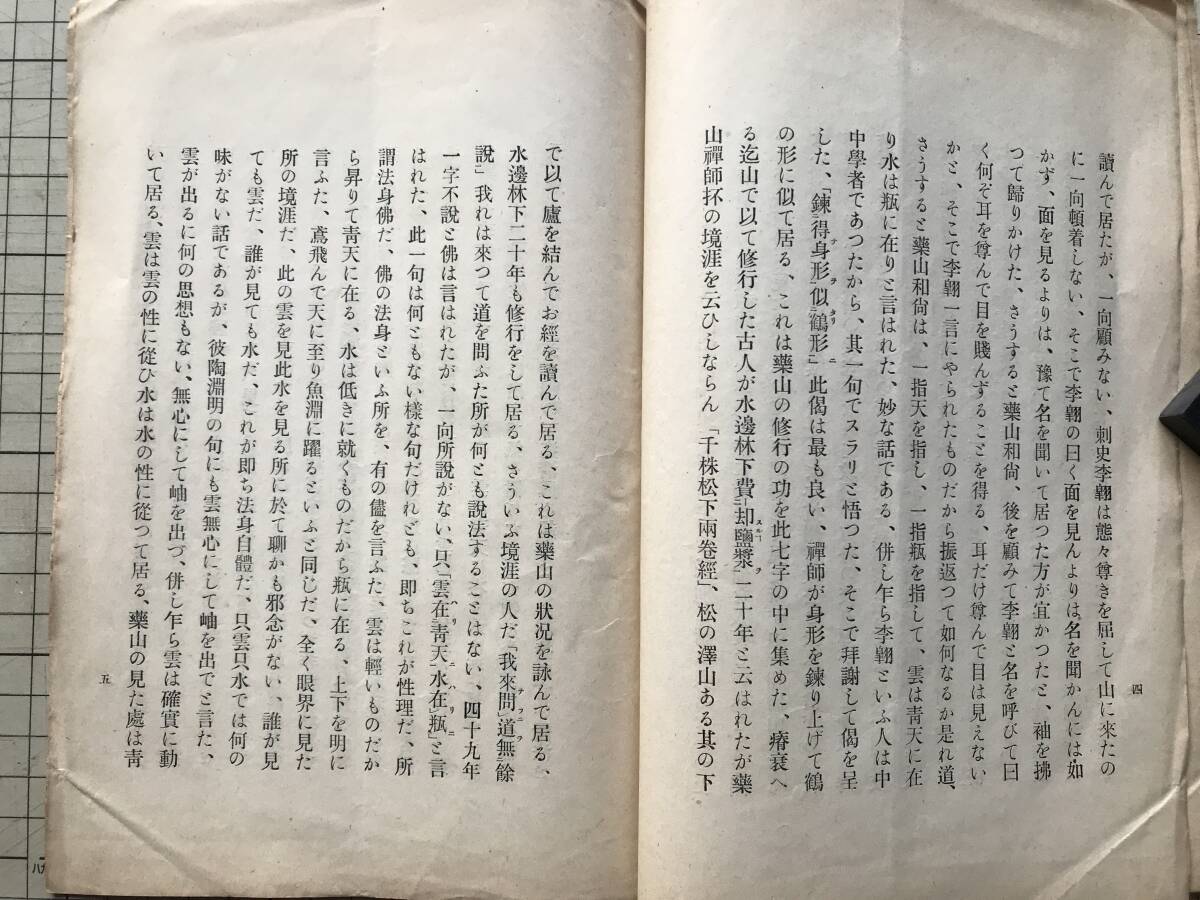 讀んで居たが、一向顧みない、刺史李翺は態々尊きを屈して山に來たの
に一向頓着しない、そこで李翺の曰く面を見んよりは名を聞かんには如
かず、面を見るよりは、豫て名を聞いて居つた方が宜かつたと、袖を拂
つて歸りかけた、さうすると藥山和尙、後を顧みて李翺と名を呼びて曰
く何ぞ耳を尊んで目を賤んずることを得る、耳だけ尊んで目は見えない
かと、そこで李翺一言にやられたものだから振返つて如何なるか是れ道、
さうすると藥山和尙は、一指天を指し、一指瓶を指して、雲は靑天に在
り水は瓶に在りと言はれた、妙な話である、併し乍ら李翺といふ人は中
中學者であつたから、其一句でスラリと悟つた、そこで拜謝して偈を呈
した、「鍊得身形似鶴形」此偈は最も良い、禪師が身形を鍊り上げて鶴
の形に似て居る、これは藥山の修行の功を此七字の中に集めた、瘠衰へ
る迄山で以て修行した古人が水邊林下費却鹽漿二十年と云はれたが藥
山禪師抔の境涯を云ひしならん「千株松下兩卷經」、松の澤山ある其の下
四
で以て廬を結んでお經を讀んで居る、これは藥山の狀況を詠んで居る、
水邊林下二十年も修行をして居る、さういふ境涯の人だ「我來問道無餘
說」我れは來つて道を問ふた所が何とも說法することはない、四十九年
一字不說と佛は言はれたが、一向所說がない、只「雲在靑天水在瓶」と言
はれた、此一句は何ともない樣な句だけれども、即ちこれが性理だ、所
謂法身佛だ、佛の法身といふ所を、有の儘を言ふた、雲は輕いものだか
ら昇りて靑天に在る、水は低きに就くものだから瓶に在る、上下を明に
言ふた、鳶飛んで天に至り魚淵に躍るといふと同じだ、全く眼界に見た
所の境涯だ、此の雲を見此水を見る所に於て聊かも邪念がない、誰が見
ても雲だ、誰が見ても水だ、これが即ち法身自體だ、只雲只水では何の
味がない話であるが、彼陶淵明の句にも雲無心にして岫を出でと言た、
雲が出るに何の思想もない、無心にして岫を出づ、併し乍ら雲は確實に動
いて居る、雲は雲の性に從ひ水は水の性に從つて居る、藥山の見た處は靑
五